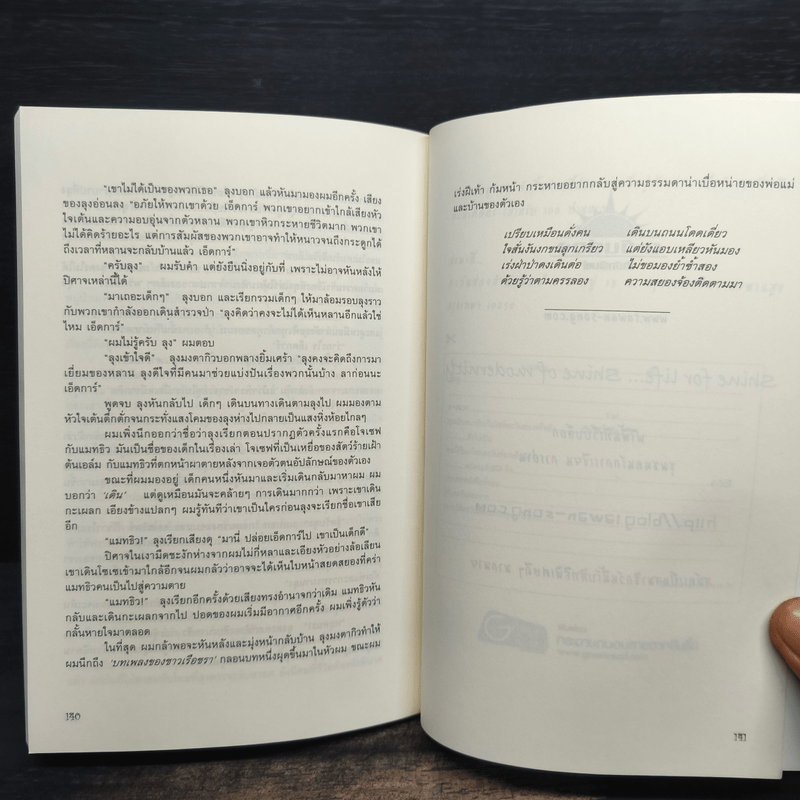 "เขาไม่ได้เป็นของพวกเธอ" ลุงบอก แล้วหันมามองผมอีกครั้ง เสียง
ของลุงอ่อนลง "อภัยให้พวกเขาด้วย เอ็ดการ์ พวกเขาอยากเข้าใกล้เสียงหัว
ใจเต้นและความอบอุ่นจากตัวหลาน พวกเขาหิวกระหายชีวิตมาก พวกเขา
ไม่ได้คิดร้ายอะไร แต่การสัมผัสของพวกเขาอาจทำให้หนาวจนถึงกระดูกได้
ถึงเวลาที่หลานจะกลับบ้านแล้ว เอ็ดการ์"
"ครับลุง" ผมรับคำ แต่ยังยืนนิ่งอยู่กับที่ เพราะไม่อาจหันหลังให้
ปีศาจเหล่านี้ได้
"มาเถอะเด็กๆ" ลุงบอก และเรียกรวมเด็กๆ ให้มาล้อมรอบลุงราว
กับพวกเขากำลังออกเดินสำรวจป่า "ลุงคิดว่าคงจะไม่ได้เห็นหลานอีกแล้วใช่
ไหม เอ็ดการ์"
"ผมไม่รู้ครับ ลุง" ผมตอบ
"ลุงเข้าใจดี" ลุงมงตากิวบอกพลางยิ้มเศร้า "ลุงคงจะคิดถึงการมา
เยี่ยมของหลาน ลุงดีใจที่มีคนมาช่วยแบ่งปันเรื่องพวกนั้นบ้าง ลาก่อนนะ
เอ็ดการ์"
พูดจบ ลุงหันกลับไป เด็กๆ เดินบนทางเดินตามลุงไป ผมมองตาม
หัวใจเต้นตึกตั่กจนกระทั่งแสงโคมของลุงห่างไปกลายเป็นแสงหิ่งห้อยไกลๆ
ผมเพิ่งนึกออกว่าชื่อว่าลุงเรียกตอนปรากฏตัวครั้งแรกคือโจเซฟ
กับแมทธิว มันเป็นชื่อของเด็กในเรื่องเล่า โจเซฟที่เป็นเหยื่อของสัตว์ร้ายเฝ้า
ต้นเอล์ม กับแมทธิวที่ตกหน้าผาตายหลังจากเจอตัวตนอัปลักษณ์ของตัวเอง
ขณะที่ผมมองอยู่ เด็กคนหนึ่งหันมาและเริ่มเดินกลับมาหาผม ผม
บอกว่า 'เดิน' แต่ดูเหมือนมันจะคล้ายๆ การเดินมากกว่า เพราะเขาเดิน
กะเผลก เอียงข้างแปลกๆ ผมรู้ทันทีว่าเขาเป็นใครก่อนลุงจะเรียกชื่อเขาเสีย
อีก
"แมทธิว!" ลุงเรียกเสียงดุ "มานี่ ปล่อยเอ็ดการ์ไป เขาเป็นเด็กดี"
ปีศาจในเงามืดชะงักห่างจากผมไม่กี่หลาและเอียงหัวอย่างล้อเลียน
เขาเดินโซเซเข้ามาใกล้อีกจนผมกลัวว่าอาจจะได้เห็นใบหน้าสยดสยองที่คร่า
แมทธิวคนเป็นไปสู่ความตาย
"แมทธิว!" ลุงเรียกอีกครั้งด้วยเสียงทรงอำนาจกว่าเดิม แมทธิวหัน
กลับและเดินกะเผลกจากไป ปอดของผมเริ่มมีอากาศอีกครั้ง ผมเพิ่งรู้ตัวว่า
กลั้นหายใจมาตลอด
ในที่สุด ผมกล้าพอจะหันหลังและมุ่งหน้ากลับบ้าน ลุงมงตากิวทำให้
ผมนึกถึง 'บทเพลงของชาวเรือชรา' กลอนบทหนึ่งผุดขึ้นมาในหัวผม ขณะผม
140
เร่งฝีเท้า ก้มหน้า กระหายอยากกลับสู่ความธรรมดาน่าเบื่อหน่ายของพ่อแม่
และบ้านของตัวเอง
เปรียบเหมือนดั่งคน เดินบนถนนโดดเดี่ยว
ใจสั่นงันงกขนลุกเกรียว แต่ยังแอบเหลียวหันมอง
เร่งฝ่าป่าดงเดินต่อ ไม่ขอมองย้ำซ้ำสอง
ด้วยรู้ว่าตามครรลอง ความสยองจ้องติดตามมา
141